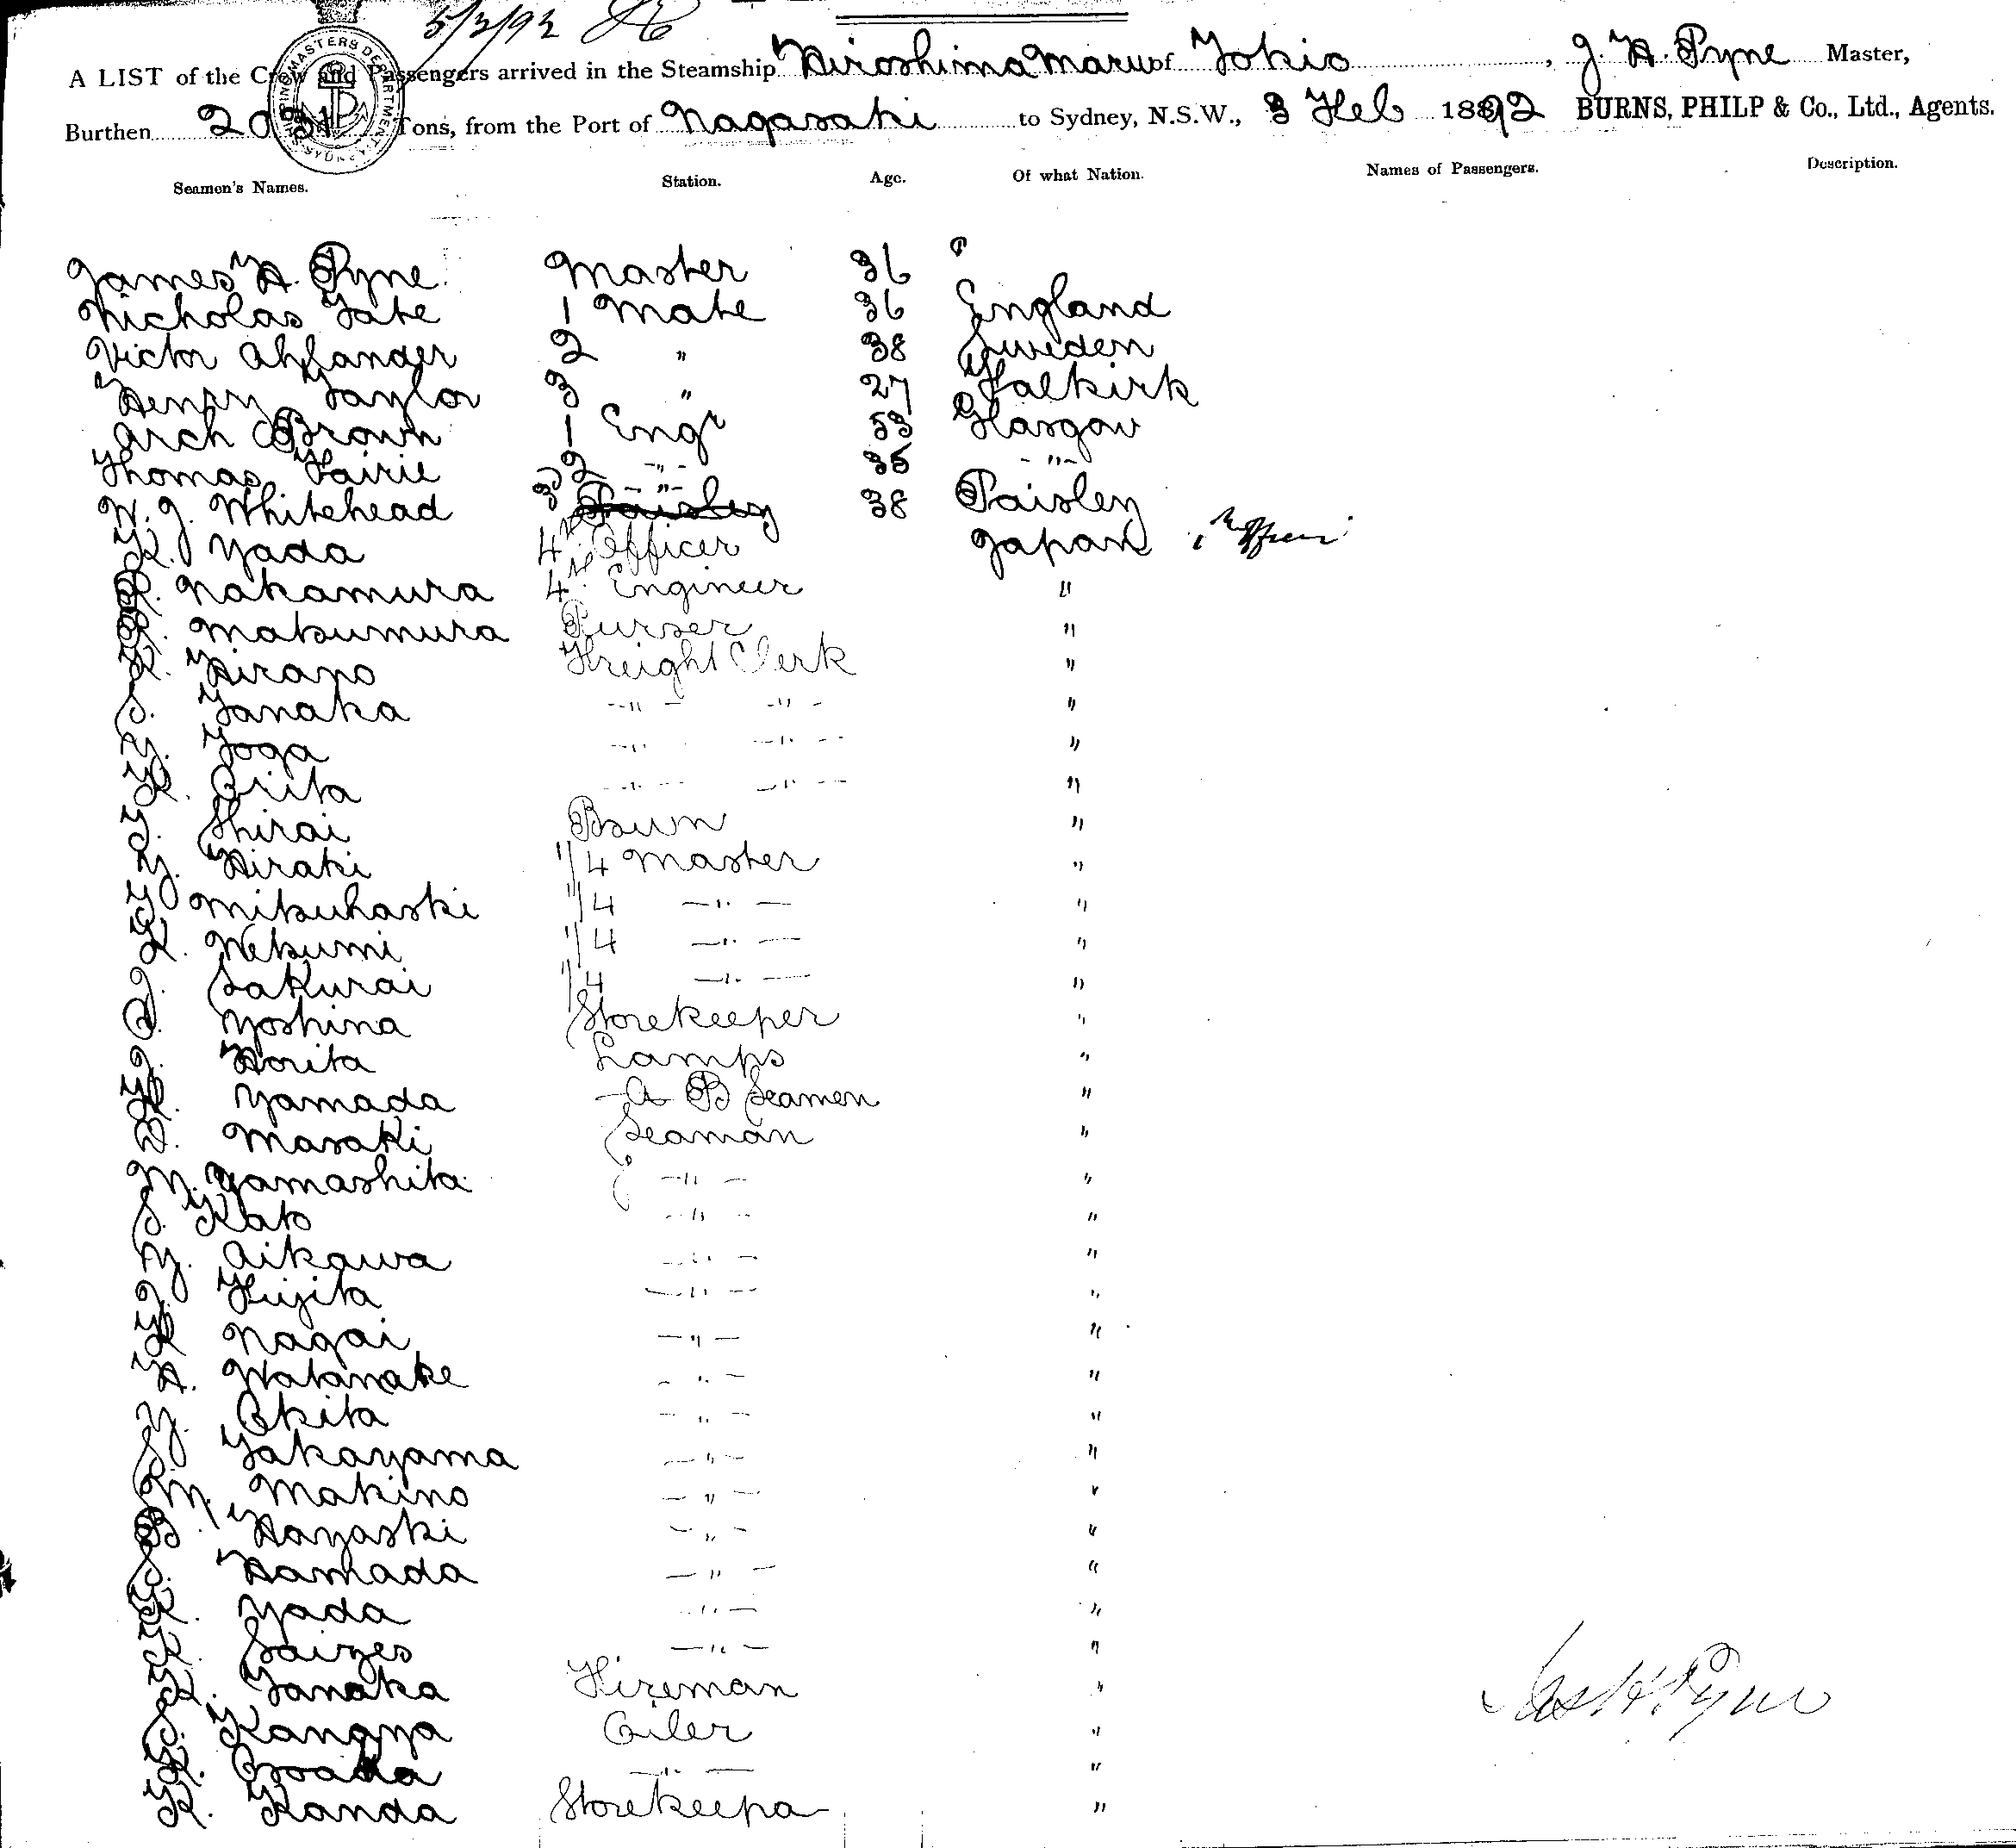 5/2/92
A LIST of the Crew and Passengers arrived in the Steamship Hiroshima Maru of Tokio, J. H. Pyne Master,
Burthen Tons, from the Port of Nagasaki to Sydney, N.S.W., 3 Feb 1892 BURNS, PHILP & Co., Ltd., Agents.
Seamen's Names. Station. Age. Of what Nation. Names of Passengers. Description.
James H. Pyne Master 36
Nicholas Tate 1 Mate 36 England
Victor Ahlander 2 " 38 Sweden
Henry Taylor 3 " 27 Falkirk
Arch Brown 1 Engr 53 Glasgow
Thomas Fairie 2 -"- 35 -"-
W. J. Whitehead 3 -"- Paisley 38 Paisley
K. Yada 4th Officer Japan
Nakamura 4th Engineer "
Matsumura Purser "
K. Hirano Freight Clerk "
S. Tanaka -"- -"- "
Y. Toga -"- -"- "
K. Orita -"- -"- "
T. Shirai Bswn "
Y. Hiraki 1/4 Master "
T. Mitsuhashi 1/4 -"- "
K. Netsumi 1/4 -"- "
J. Sakurai 1/4 -"- "
Yoshina Storekeeper "
J. Horita Lamps "
K. Yamada A B Seamen "
Masaki Seaman "
M. Yamashita -"- "
S. Kato -"- "
Y. Aikawa -"- "
J. Fujita -"- "
K Nagai -"- "
H. Watanake -"- "
Y. Okita -"- "
S. Takayama -"- "
M. Makino -"- "
B. Hayashi -"- "
S. Hamada -"- "
K. Yada -"- "
K. Saizes -"- "
K. Tanaka Fireman "
S. Kangya Oiler "
K. Osaka -"- "
K. Kanda Storekeepa "
Jas H. Pyne